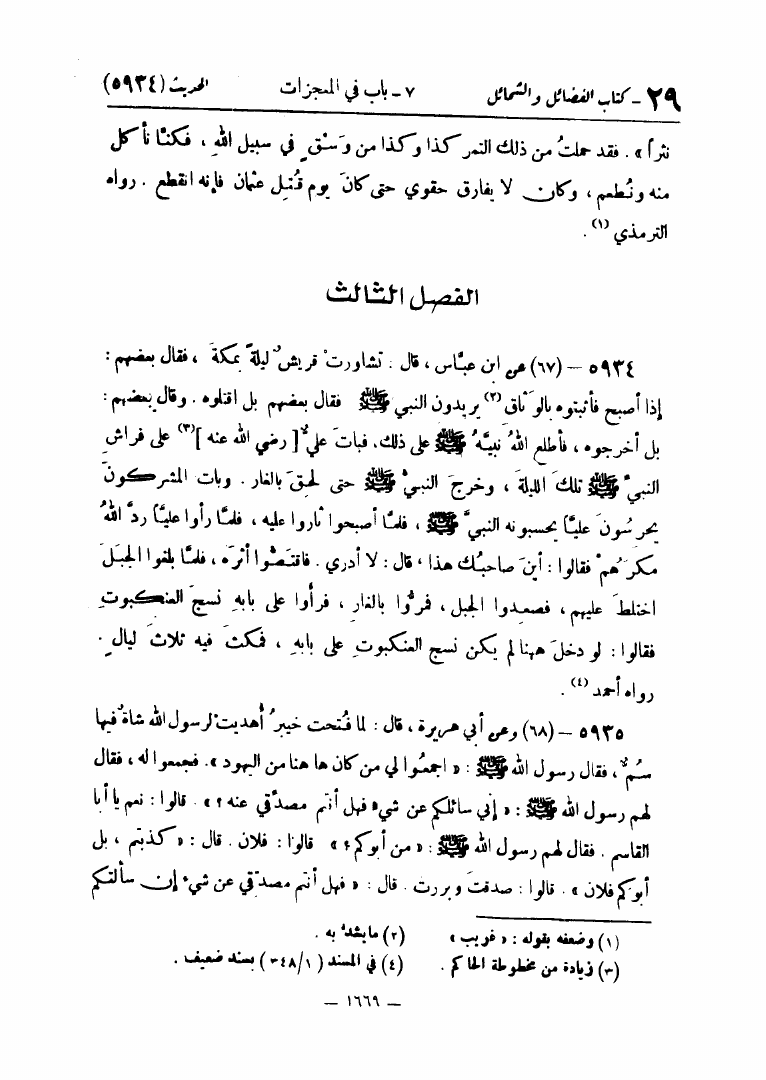 ٢٩ - كتاب الفضائل والشمائل ٧ - باب في المعجزات الحديث (٥٩٣٤)
نثراً» . فقد حملتُ من ذلك التمر كذا وكذا من وَسْقٍ في سبيل اللهِ ، فكنَّا نأكل
منه ونُطعم ، وكان لا يفارق حقوي حتى كانَ يوم قُتل عثمان فإنه انقطع . رواه
الترمذي (١) .
الفصل الثالث
٥٩٣٤ - (٦٧) عن ابن عبَّاس ، قال : تشاورتْ قريشٌ ليلةً بمكةَ ، فقال بعضهم :
إذا أصبح فأثبتوه بالوَثاق (٢) يريدون النبي ﷺ فقال بعضهم بل اقتلوه . وقال بعضهم :
بل أخرجوه ، فأطلع اللهُ نبيَّهُ ﷺ على ذلك، فباتَ عليٌّ [ رضي الله عنه ] (٣) على فراشِ
النبيِّ ﷺ تلكَ الليلةَ ، وخرجَ النبيُّ ﷺ حتى لحقَ بالغار . وبات المشركونَ
يحرسُونَ عليَّاً يحسبونه النبيَّ ﷺ ، فلمَّا أصبحوا ثاروا عليه ، فلمَّا رأوا عليَّاً ردَّ اللهُ
مكرَهُمْ فقالوا : أينَ صاحبُك هذا ، قال : لا أدري . فاقتصُّوا أثرَه ، فلمَّا بلغوا الجبلَ
اختلطَ عليهم ، فصعدوا الجبل ، فمرُّوا بالغارِ ، فرأوا على بابهِ نسجَ العنكبوتِ
فقالوا : لو دخلَ ههنا لم يكن نسج العنكبوتِ على بابهِ ، فمكثَ فيه ثلاثَ ليالٍ .
رواه أحمد (٤) .
٥٩٣٥ - (٦٨) وعن أبي هريرة ، قال : لما فُتحت خيبرُ أُهديتْ لرسول الله شاةٌ فيها
سُمٌّ ، فقال رسول الله ﷺ : « اجمعُوا لي من كان ها هنا من اليهود ». فجمعوا له ، فقال
لهم رسول الله ﷺ : « إني سائلكم عن شيءٍ فهل أنتم مصدِّقي عنه ؟ » . قالوا : نعم يا أبا
القاسم . فقال لهم رسول الله ﷺ : « من أبوكم ؟ » قالوا : فلان . قال : « كذبتم ، بل
أبوكم فلان » . قالوا : صدقتَ وبررت . قال : « فهل أنتم مصدِّقي عن شيءٍ إن سألتكم
(١) وضعفه بقوله : « غريب » (٢) ما يشدُّ به .
(٣) زيادة من مخطوطة الحاكم . (٤) في المسند ( ١ / ٣٤٨ ) بسند ضعيف .
— ١٦٦٩ —